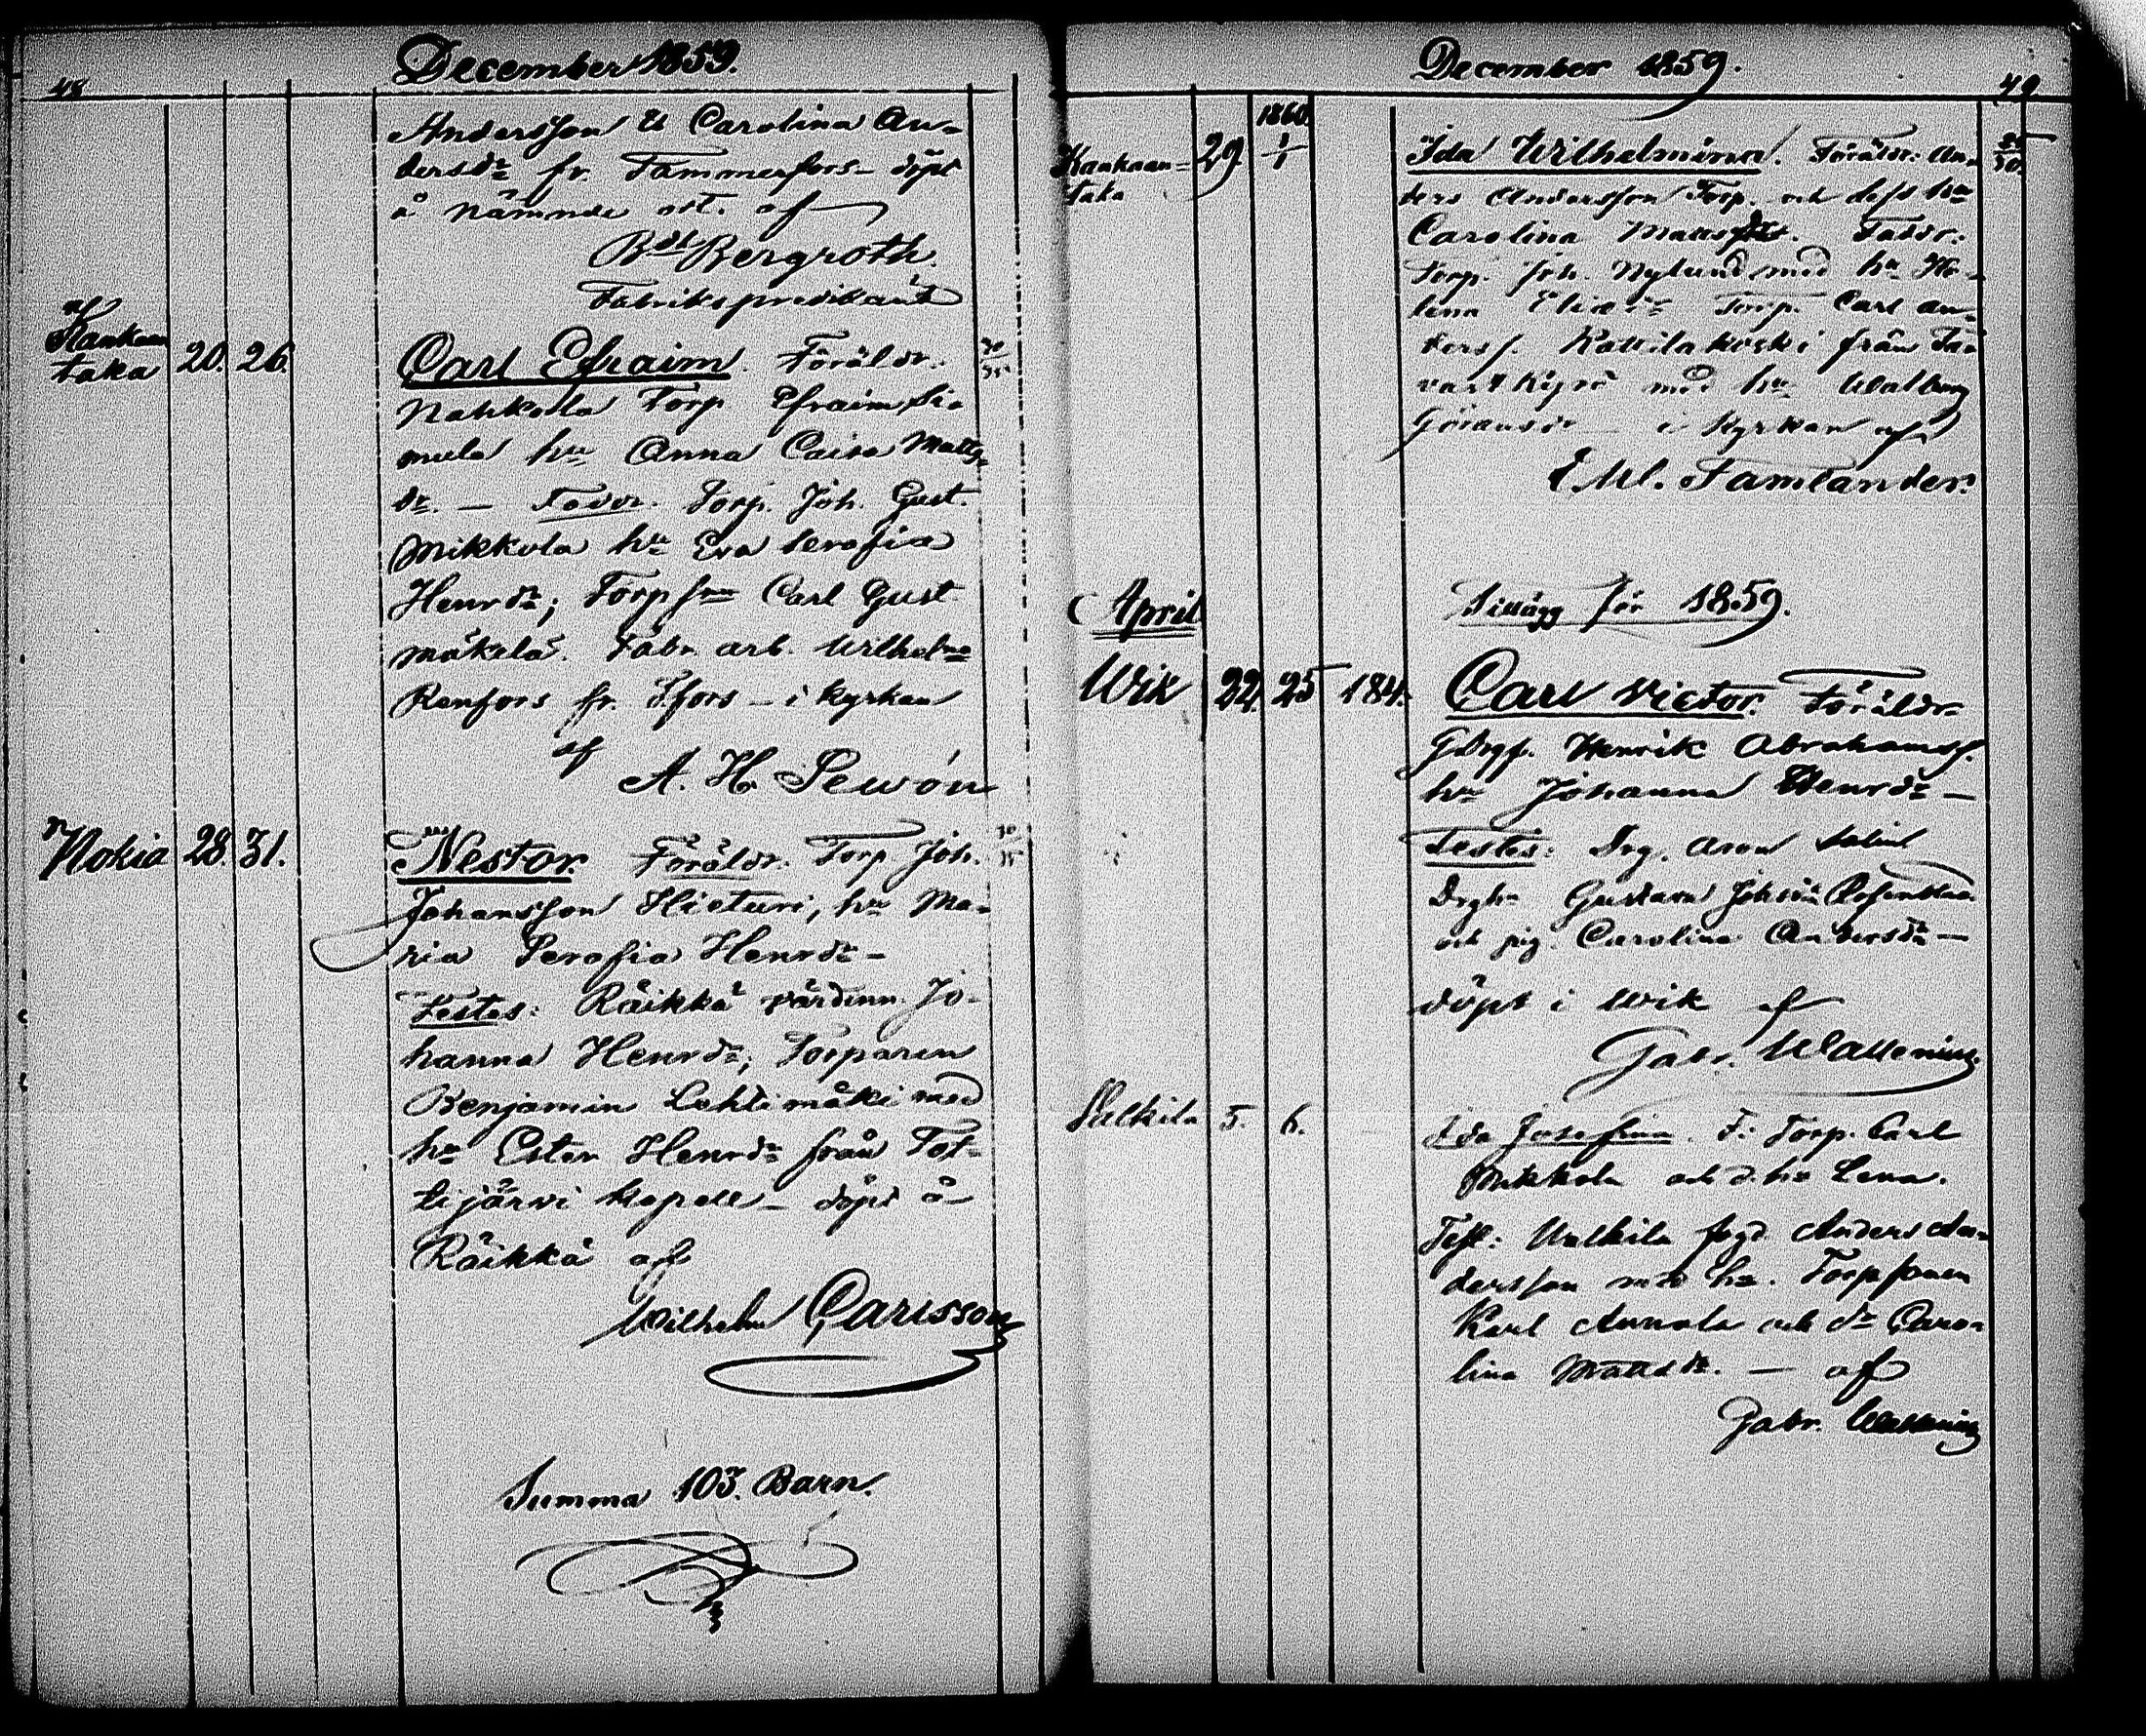 48
December 1859.
Andersson & Carolina An-
dersdr fr. Tammerfors - döpt
å nämnde ort. af
Bdt Bergroth.
Fabrikspredikant
Kankaan
taka 20. 26. Carl Efraim. Föräldr. 30/35
Nahkola Torp Efraim Si-
mula hu Anna Caisa Matts
dr. — Faddr. Torp. Joh. Gust.
Mikkola hu Eva Serafia
Henrdr; Torpsson Carl Gust
Mäkelä. Fabr. arb. Wilhelmna
Renfors fr. Tfors - i kyrkan
af
A. H. Sewón
Nokia 28. 31. Nestor. Föräldr. Torp Joh. 30/35
Johansson Hieturi, hu Ma-
ria Serafia Henrdr -
Testes: Räikkä värdinn. Jo-
hanna Henrdr; Torparen
Benjamin Lehtimäki med
hu Ester Henrdr från Tot-
tijärvi kapell - döpt å
Räikkä af
Wilhelm Carlsson
Summa 103. Barn.
December 1859.
49
1860
Kankaan-
taka 29 1/1 Ida Wilhelmina. Föräldr. An-
ders Andersson Torp. och dess hu
Carolina Mattsdtr. Faddr:
Torp. Joh. Nylund med hu He-
lena Eliædr Torp. Carl An-
derss. Kattilakoski från Ta-
vastkyrö med hu Walborg
Göransdr i kyrkan af
E. Ml. Tamlander.
April
Tillägg för 1859.
Wik 22. 25 184. Carl Victor. Föräldr
Henrik Abrahamss.
hu Johanna Henrdr —
Testes: Drg. Aron Salin
Gustava Johsdr
och pig. Carolina Andersdr —
döpt i Wik af
Gabr. Wallenius.
5. 6. Ida Josefina. F: Torp. Carl
Mikkola och d. hu Lena.
Test: Anders An-
dersson med hu. Torpsonen
Karl Annala och dr Caro-
lina Mattsdr. — af
Gabr. Wallenius